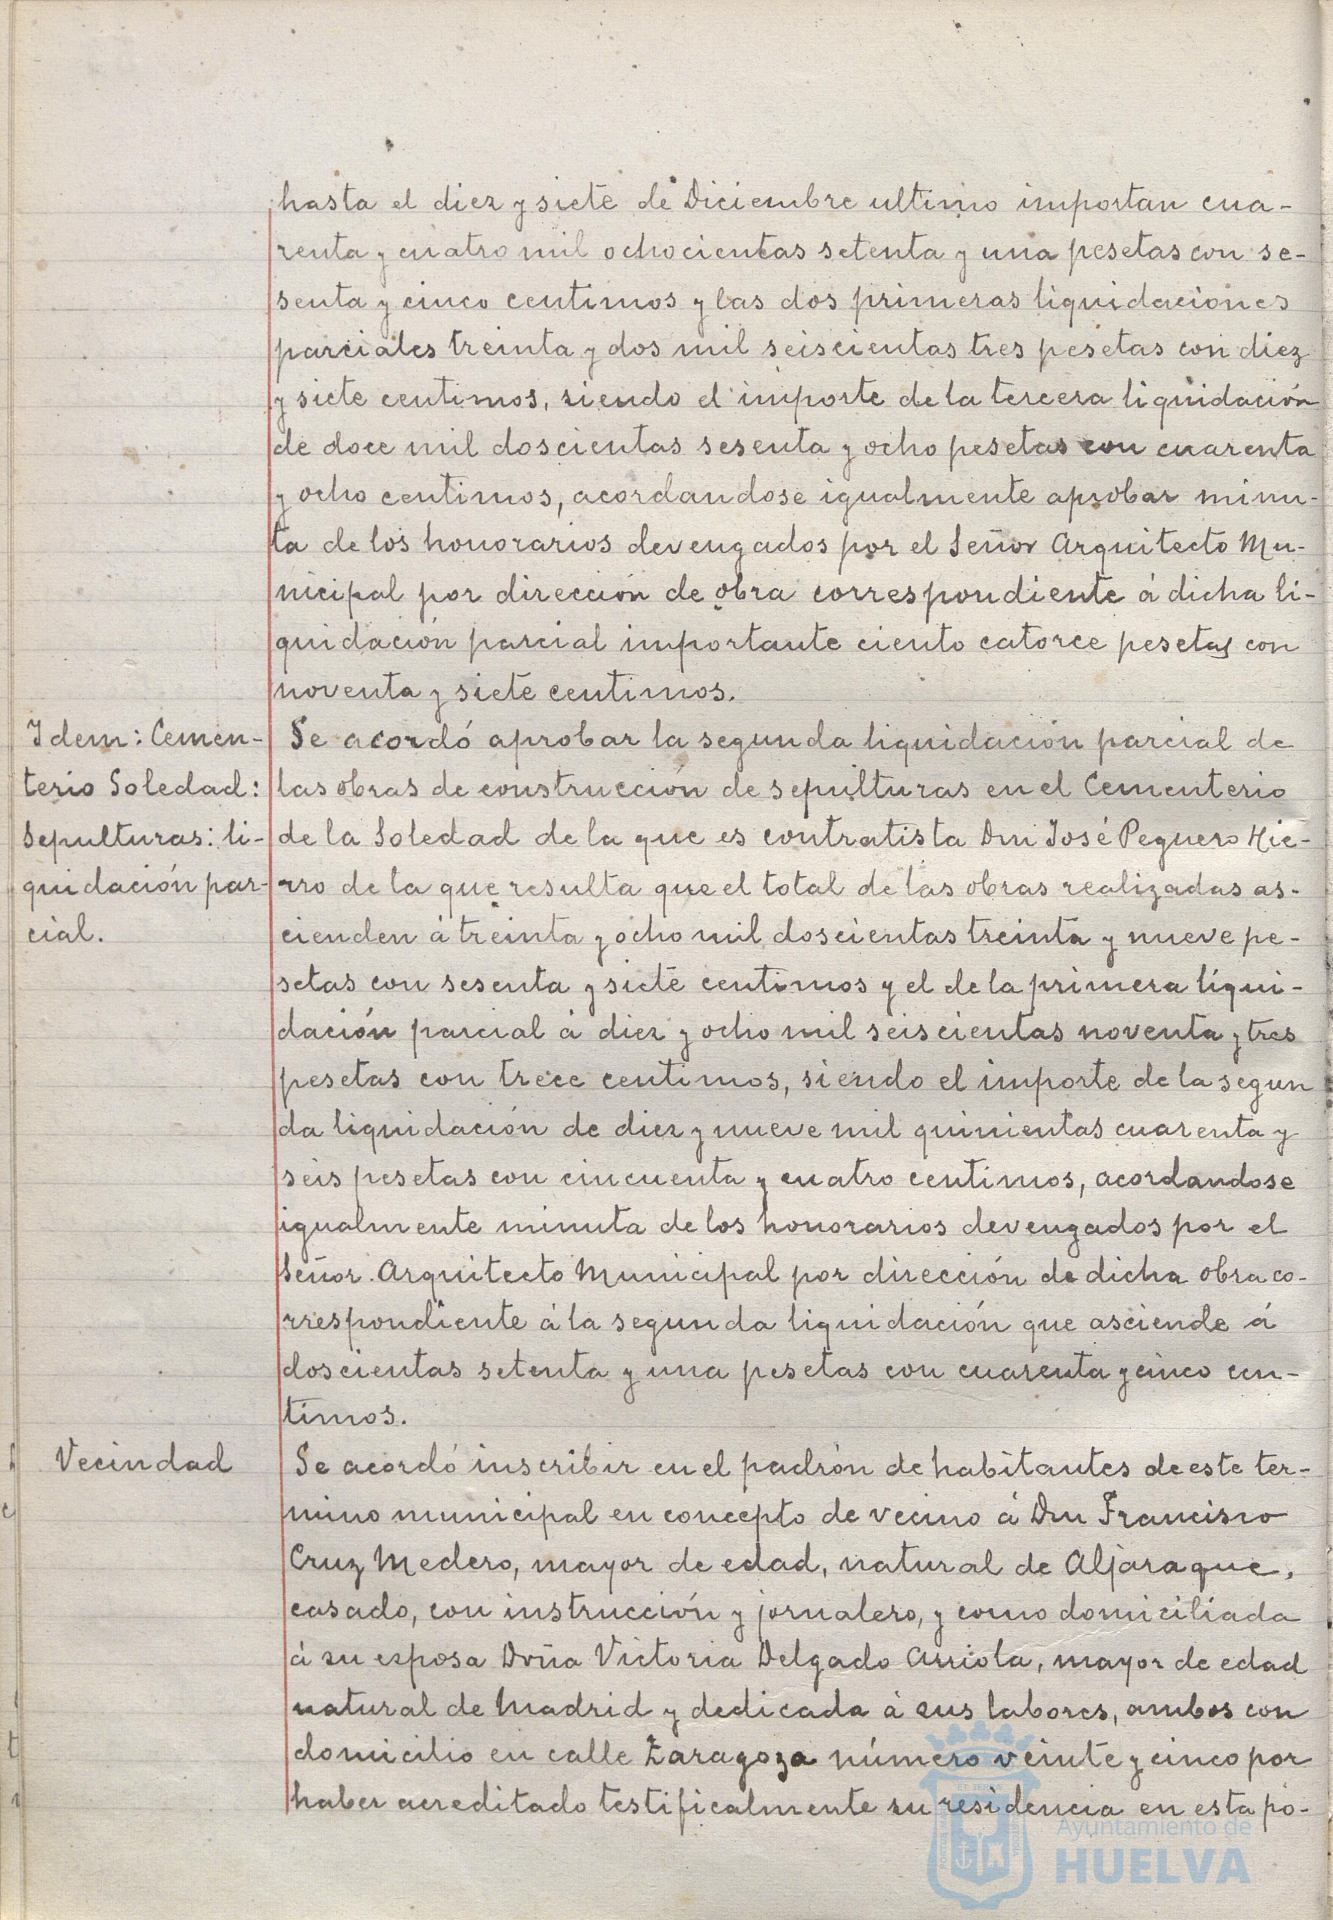 hasta el diez y siete de Diciembre ultimo importan cua-
renta y cuatro mil ochocientas setenta y una pesetas con se-
senta y cinco centimos y las dos primeras liquidaciones
parciales treinta y dos mil seiscientas tres pesetas con diez
y siete centimos, siendo el importe de la tercera liquidación
de doce mil doscientas sesenta y ocho pesetas con cuarenta
y ocho centimos, acordandose igualmente aprobar minu-
ta de los honorarios devengados por el Señor Arquitecto Mu-
nicipal por dirección de obra correspondiente á dicha li-
quidación parcial importante ciento catorce pesetas con
noventa y siete centimos.
Idem: Cemen-
terio Soledad:
Sepulturas: li-
quidación par-
cial.
Se acordó aprobar la segunda liquidación parcial de
las obras de construcción de sepulturas en el Cementerio
de la Soledad de la que es contratista Don José Peguero Hie-
rro de la que resulta que el total de las obras realizadas as-
cienden á treinta y ocho mil doscientas treinta y nueve pe-
setas con sesenta y siete centimos y el de la primera liqui-
dación parcial á diez y ocho mil seiscientas noventa y tres
pesetas con trece centimos, siendo el importe de la segun
da liquidación de diez y nueve mil quinientas cuarenta y
seis pesetas con cincuenta y cuatro centimos, acordandose
igualmente minuta de los honorarios devengados por el
Señor Arquitecto Municipal por dirección de dicha obra co-
rrespondiente á la segunda liquidación que asciende á
doscientas setenta y una pesetas con cuarenta y cinco cen-
timos.
Vecindad
Se acordó inscribir en el padrón de habitantes de este ter-
mino municipal en concepto de vecino á Don Francisco
Cruz Medero, mayor de edad, natural de Aljaraque,
casado, con instrucción y jornalero, y como domiciliada
á su esposa Doña Victoria Delgado Arriola, mayor de edad
natural de Madrid y dedicada á sus labores, ambos con
domicilio en calle Zaragoza número veinte y cinco por
haber acreditado testificalmente su residencia en esta po-
Ayuntamiento de
HUELVA